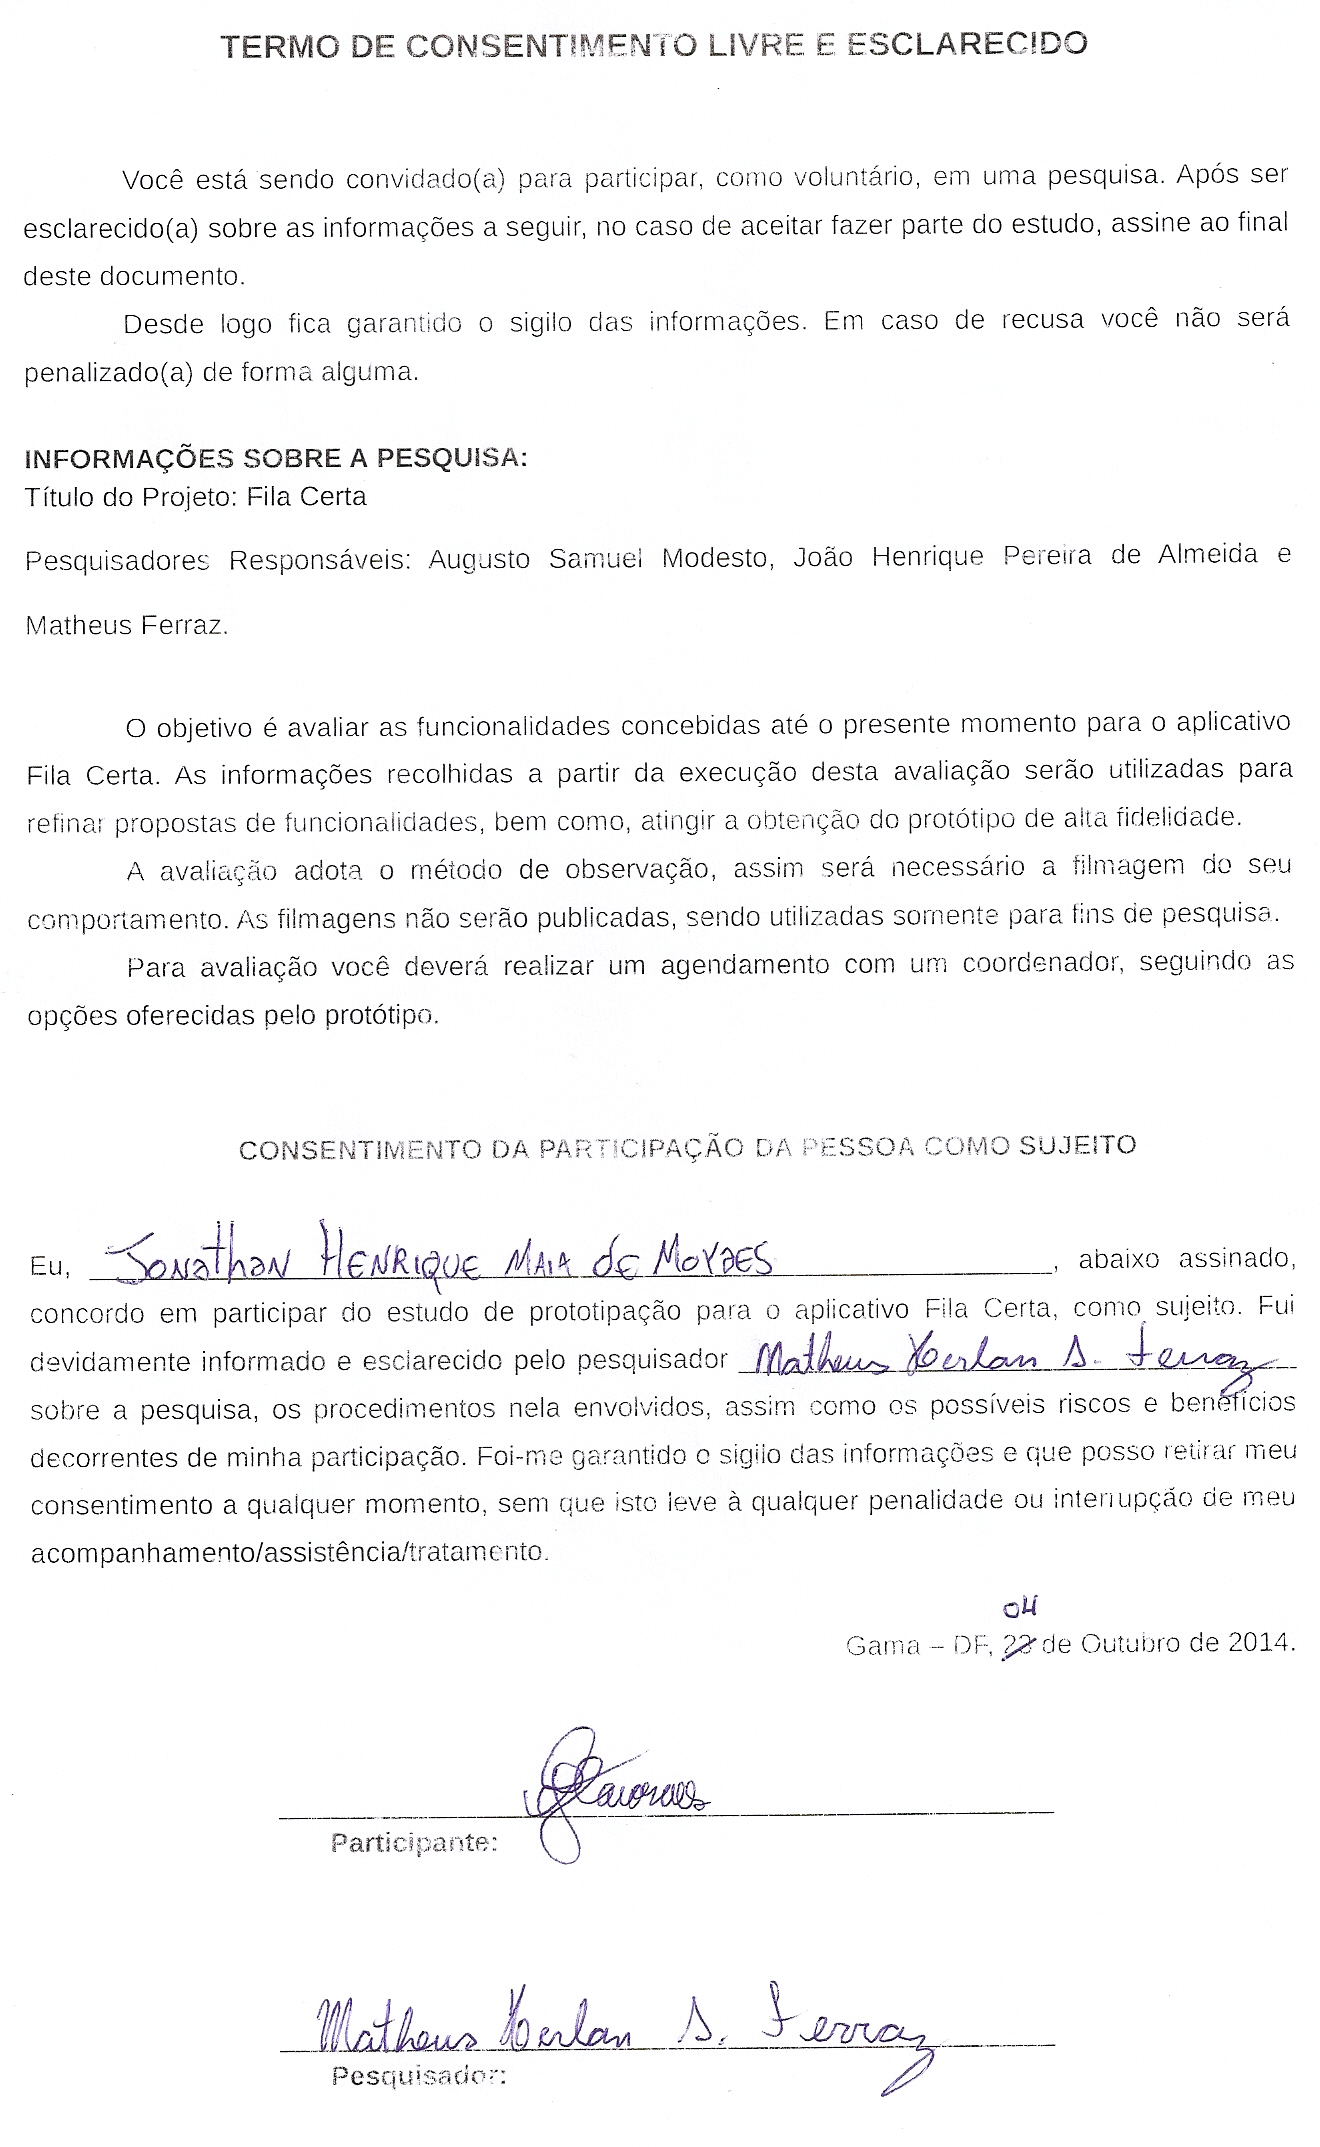 TERMO DE CONSENTIMENTO LIVRE E ESCLARECIDO
Você está sendo convidado(a) para participar, como voluntário, em uma pesquisa. Após ser
esclarecido(a) sobre as informações a seguir, no caso de aceitar fazer parte do estudo, assine ao final
deste documento.
Desde logo fica garantido o sigilo das informações. Em caso de recusa você não será
penalizado(a) de forma alguma.
INFORMAÇÕES SOBRE A PESQUISA:
Título do Projeto: Fila Certa
Pesquisadores Responsáveis: Augusto Samuel Modesto, João Henrique Pereira de Almeida e
Matheus Ferraz.
O objetivo é avaliar as funcionalidades concebidas até o presente momento para o aplicativo
Fila Certa. As informações recolhidas a partir da execução desta avaliação serão utilizadas para
refinar propostas de funcionalidades, bem como, atingir a obtenção do protótipo de alta fidelidade.
A avaliação adota o método de observação, assim será necessário a filmagem do seu
comportamento. As filmagens não serão publicadas, sendo utilizadas somente para fins de pesquisa.
Para avaliação você deverá realizar um agendamento com um coordenador, seguindo as
opções oferecidas pelo protótipo.
CONSENTIMENTO DA PARTICIPAÇÃO DA PESSOA COMO SUJEITO
Eu, Jonathan Henrique Maia de Moraes, abaixo assinado,
concordo em participar do estudo de prototipação para o aplicativo Fila Certa, como sujeito. Fui
devidamente informado e esclarecido pelo pesquisador Matheus Herlan S. Ferraz
sobre a pesquisa, os procedimentos nela envolvidos, assim como os possíveis riscos e benefícios
decorrentes de minha participação. Foi-me garantido o sigilo das informações e que posso retirar meu
consentimento a qualquer momento, sem que isto leve à qualquer penalidade ou interrupção de meu
acompanhamento/assistência/tratamento.
04
Gama – DF, 22 de Outubro de 2014.
Participante:
Matheus Herlan S. Ferraz
Pesquisador: